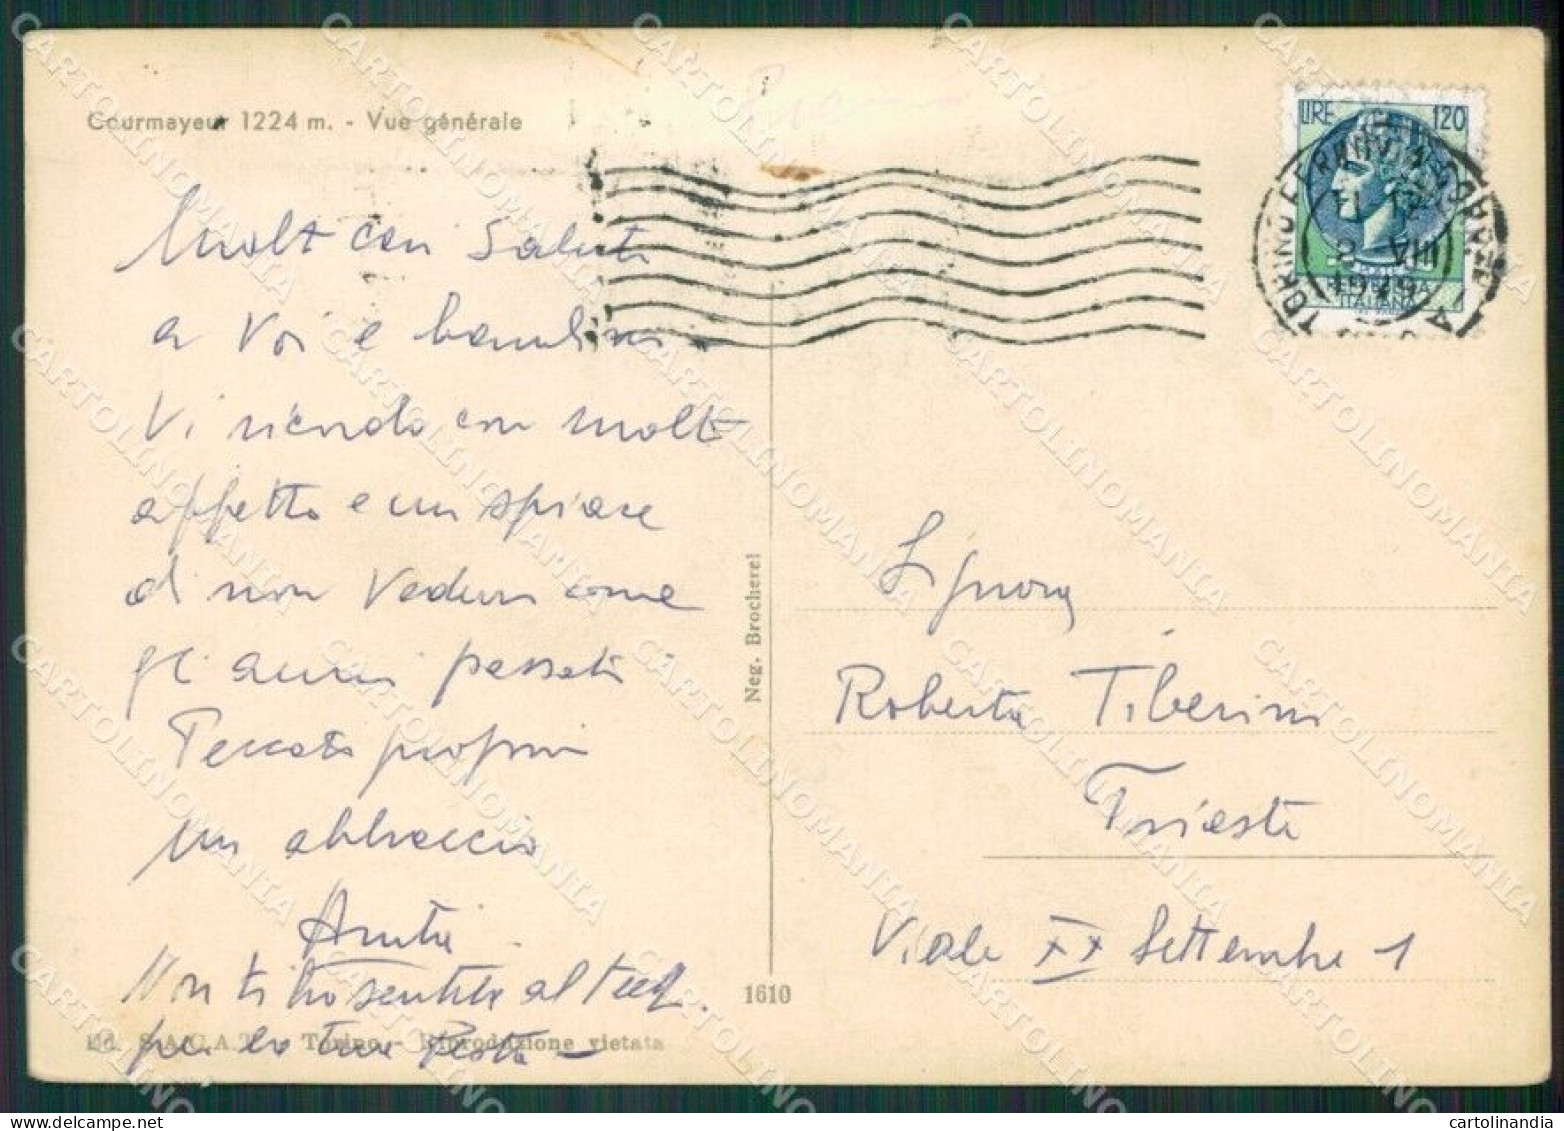 Courmayeur 1224 m. - Vue générale
LIRE 120
TORINO FERROVIA CORRISP.
VIII
REPUBBLICA
ITALIANA
Molti cari saluti
a Voi e bambini
Vi ricordo con molto
affetto e mi spiace
di non vedervi come
gli anni passati
Peccato proprio
un abbraccio
Anita
Non ti ho sentita al tel.
per la tua festa -
Ed. S.A.C.A.T. - Torino - Riproduzione vietata
Neg. Brocherel
1610
Signora
Roberta Tiberini
Trieste
Viale XX Settembre 1
CARTOLINOMANIA
cartolinandia